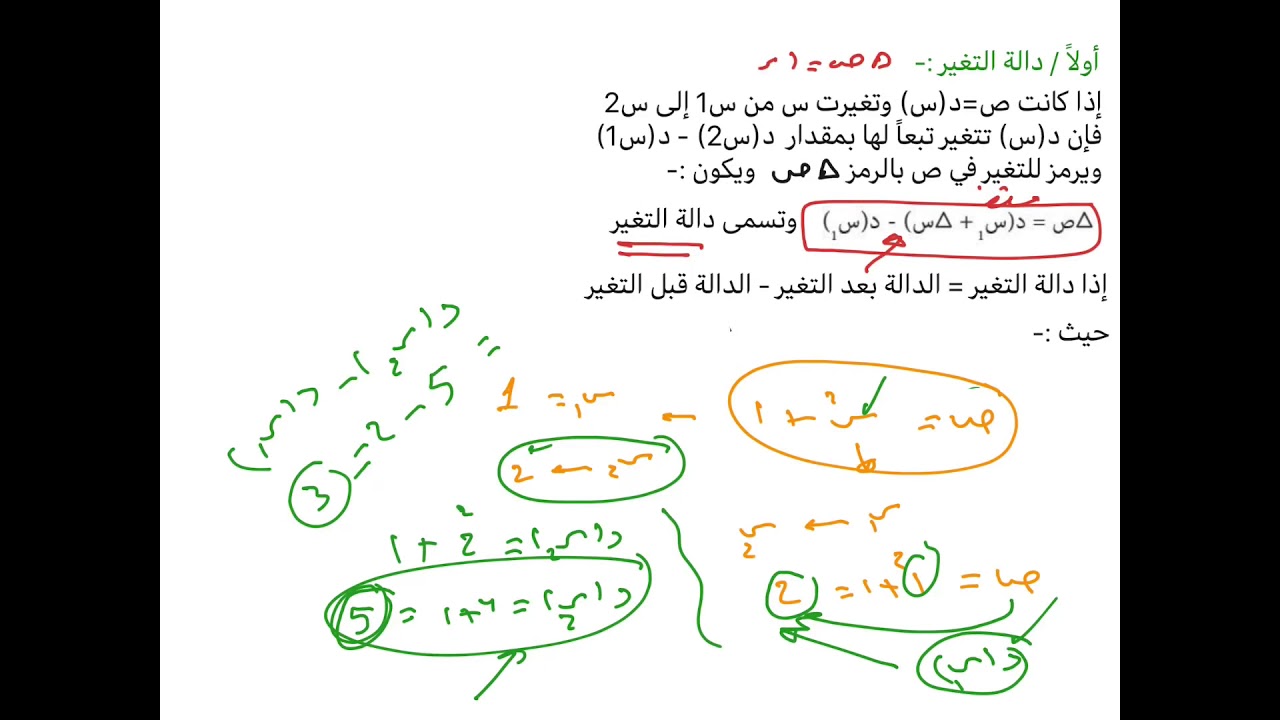 أولاً / دالة التغير :-
إذا كانت ص=د(س) وتغيرت س من س1 إلى س2
فإن د(س) تتغير تبعاً لها بمقدار د(س2) - د(س1)
ويرمز للتغير في ص بالرمز Δص ويكون :-
Δص = د(س₁ + Δس) - د(س₁) وتسمى دالة التغير
إذا دالة التغير = الدالة بعد التغير - الدالة قبل التغير
حيث :-
ص = س² + 1 ← س₁ = 1
س₂ ← 2
س₁ ← س₂
ص = 1² + 1 = 2
د(س₁)
د(س₂) = 2² + 1
د(س₂) = 4 + 1 = 5
= د(س₂) - د(س₁)
5 - 2 = 3